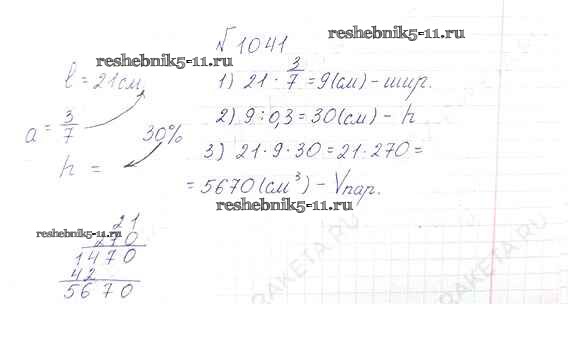 № 1041
reshebnik5-11.ru
reshebnik5-11.ru
l = 21 см
a = 3/7
30%
h =
1) 21 · 3/7 = 9 (см) – шир.
2) 9 : 0,3 = 30 (см) – h
3) 21 · 9 · 30 = 21 · 270 =
= 5670 (см³) – Vпар.
reshebnik5-11.ru
21
reshebnik5-11.ru
270
1470
42
5670
RAKETA.RU
RAKETA.RU